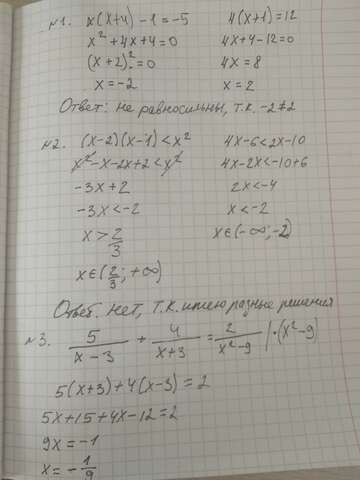 №1. x(x+4) - 1 = -5 4(x+1) = 12
x² + 4x + 4 = 0 4x + 4 - 12 = 0
(x + 2)² = 0 4x = 8
x = -2 x = 2
Ответ: не равносильны, т.к. -2 ≠ 2
№2. (x-2)(x-1) < x² 4x - 6 < 2x - 10
x² - x - 2x + 2 < x² 4x - 2x < -10 + 6
-3x + 2 2x < -4
-3x < -2 x < -2
x > 2/3 x ∈ (-∞; -2)
x ∈ (2/3; +∞)
Ответ: нет, т.к. имею разные решения
№3. 5/(x-3) + 4/(x+3) = 2/(x²-9) | · (x²-9)
5(x+3) + 4(x-3) = 2
5x + 15 + 4x - 12 = 2
9x = -1
x = -1/9